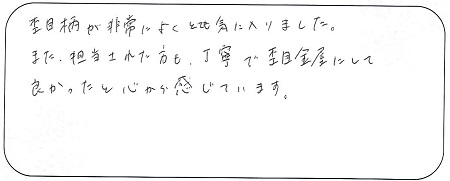 杢目柄が非常によくとも気に入りました。
また、担当された方も、丁寧で杢目金屋にして
良かったと心から感じています。